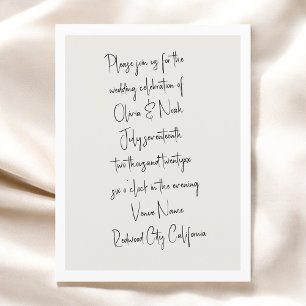 Please join us for the
wedding celebration of
Olivia & Noah
July seventeenth
two thousand twentysix
six o'clock in the evening
Venue Name
Redwood City California